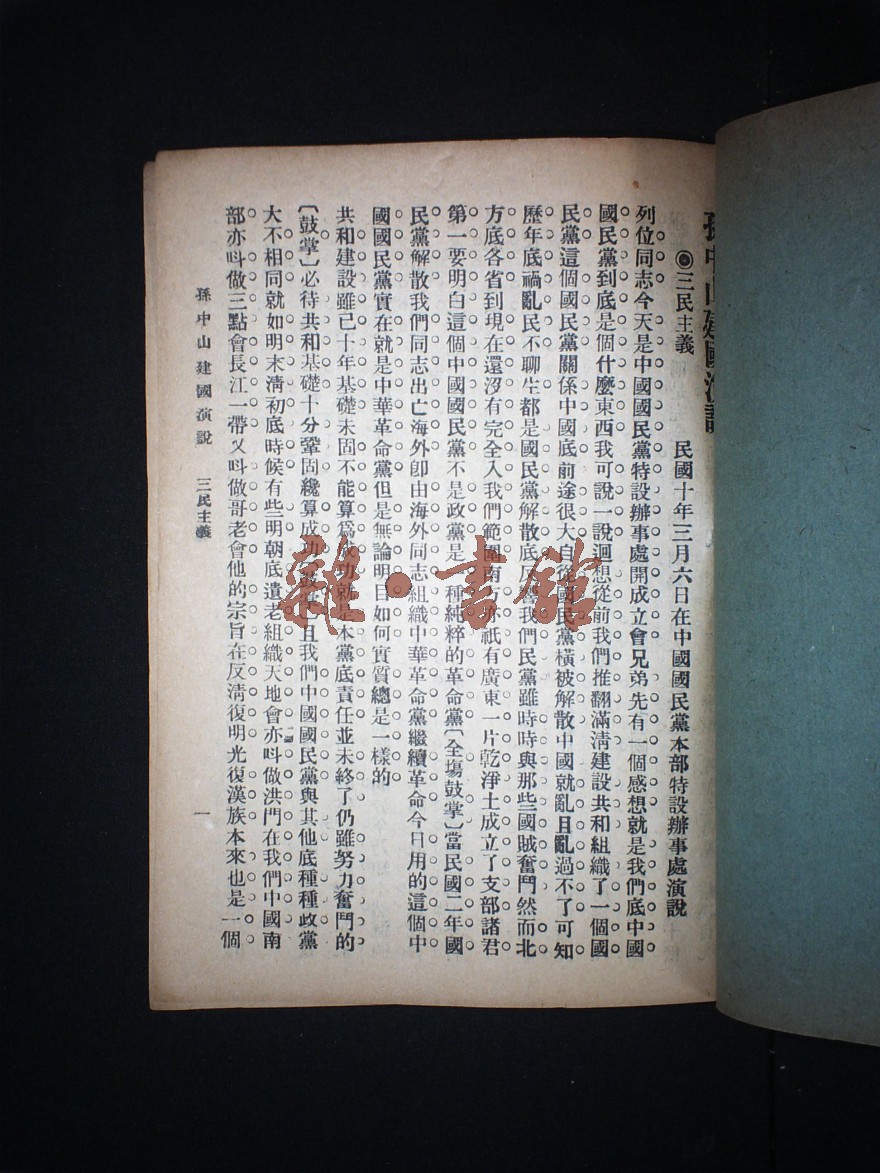 孫中山建國演說
◉三民主義　民國十年三月六日在中國國民黨本部特設辦事處演說
列位同志今天是中國國民黨特設辦事處開成立會兄弟先有一個感想就是我們底中國
國民黨到底是個什麼東西我可說一說迴想從前我們推翻滿淸建設共和組織了一個國
民黨這個國民黨關係中國底前途很大自從國民黨橫被解散中國就亂且亂過不了可知
歷年底禍亂民不聊生都是國民黨解散底反我們民黨雖時時與那些國賊奮鬥然而北
方底各省到現在還沒有完全入我們範圍南方祇有廣東一片乾淨土成立了支部諸君
第一要明白這個中國國民黨不是政黨是一種純粹的革命黨〔全塲鼓掌〕當民國二年國
民黨解散我們同志出亡海外卽由海外同志組織中華革命黨繼續革命今日用的這個中
國國民黨實在就是中華革命黨但是無論明目如何實質總是一樣的
共和建設雖已十年基礎未固不能算爲成功就是本黨底責任並未終了仍雖努力奮鬥的
〔鼓掌〕必待共和基礎十分鞏固纔算成功〔鼓掌〕且我們中國國民黨與其他底種種政黨
大不相同就如明末清初底時候有些明朝底遺老組織天地會亦呌做洪門在我們中國南
部亦呌做三點會長江一帶又呌做哥老會他的宗旨在反淸復明光復漢族本來也是一個
孫中山建國演說　三民主義　一
雜·書館